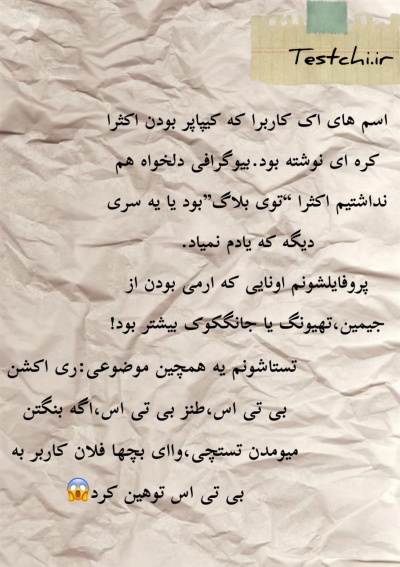 Testchi.ir
اسم های اک کاربرا که کیپاپر بودن اکثرا
کره ای نوشته بود.بیوگرافی دلخواه هم
نداشتیم اکثرا “توی بلاگ”بود یا یه سری
دیگه که یادم نمیاد.
پروفایلشونم اونایی که ارمی بودن از
جیمین،تهیونگ یا جانگکوک بیشتر بود!
تستاشونم یه همچین موضوعی:ری اکشن
بی تی اس،طنز بی تی اس،اگه بنگتن
میومدن تستچی،وااای بچها فلان کاربر به
بی تی اس توهین کرد😱